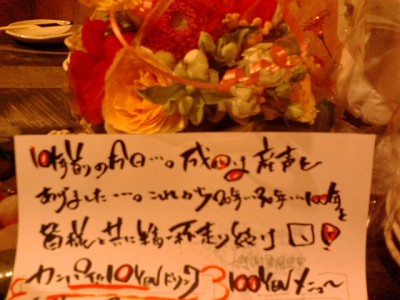 10年前の今日…。成田は産声を
あげました…。これから20年…30年…100年と
皆様と共に精一杯走り続け
カンパイは10YENドリンク 100YENメニュー